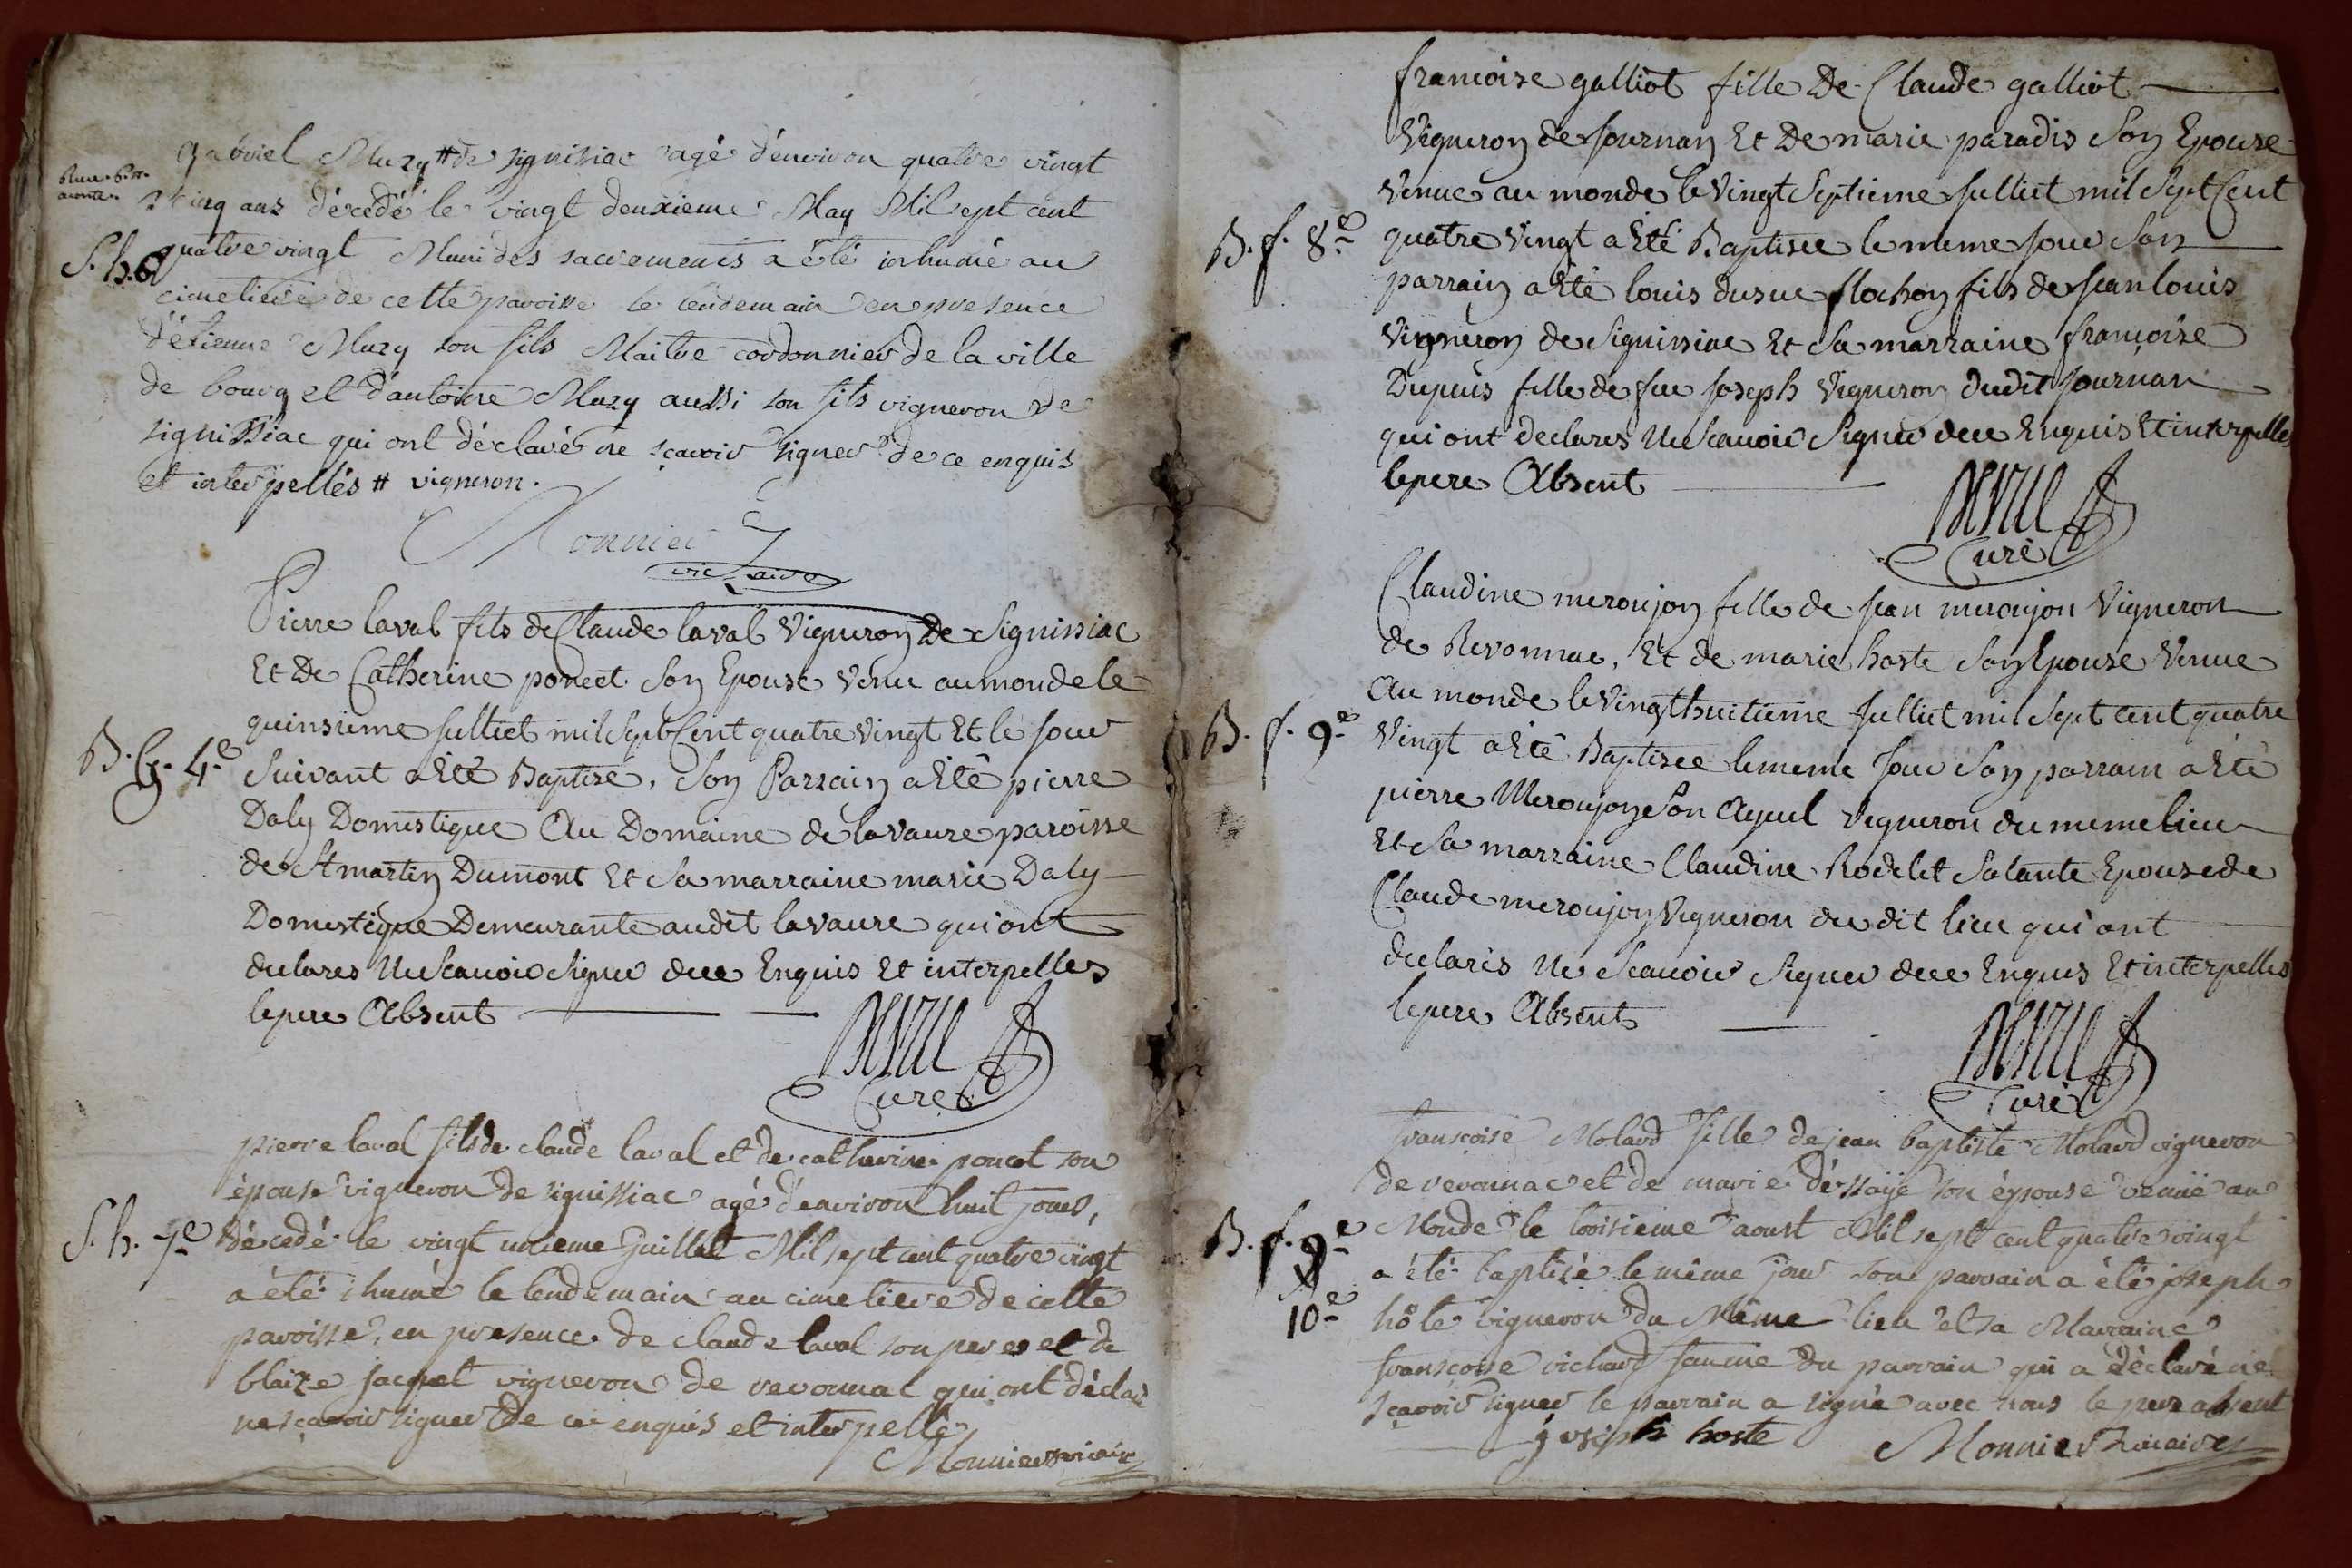 gabriel Muzy # de signissiac agé d'environ quatre vingt
cinq ans décedé le vingt deuxieme May Mil sept cent
S. h. 6
quatre vingt Muni des sacrements a été inhumé au
cimetiere de cette paroisse le lendemain en presence
d'étienne Muzy son fils Maitre cordonnier de la ville
de bourg et d'antoine Muzy aussi son fils vigneron de
signissiac qui ont déclaré ne sçavoir signer de ce enquis
et interpellés # vigneron.
Monnier
vicaire
Pierre laval fils de Claude laval Vigneron De Signissiac
Et De Catherine poncet Son Epouse Venu au monde le
quinsieme Julliet mil Sept Cent quatre Vingt Et le Jour
B. G. 4e
Suivant a Eté Baptisé, Son Parrain a Eté pierre
Daly Domestique Au Domaine de lavaure paroisse
de St martin Dumont Et Sa marraine marie Daly
Domestique Demeurante audit lavaure qui ont
declares Ne Scauoir Signer dece Enquis Et interpelles
le pere Absent
DEVRIE
Curé
pierre laval fils de claude laval et de catherine poncet son
épouse vigneron de signissiac agé d'environ huit jours,
S. h. 7e
décedé le vingt unieme Juillet Mil sept cent quatre vingt
a été ihumé le lendemain au cimetiere de cette
paroisse, en presence de claude laval son pere et de
blaize jacquet vigneron de revonnac qui ont décla
ne sçavoir signer de ce enquis et interpellé
Monnier vicaire
francoise galliot fille De Claude galliot
Vigneron de Journan Et De marie paradis Son Epouse
Venue au monde le Vingt Septieme Julliet mil Sept Cent
B. f. 8e
quatre Vingt a Eté Baptisee le meme Jour Son
parrain a Eté louis dusuc flochon fils de Jean louis
Vigneron de Signissiac Et Sa marraine françoise
Dupuis fille de feu Joseph Vigneron dudit Journan
qui ont declares Ne Scauoir Signer dece Enquis Et interpelles
le pere Absent
DEVRIE
Curé
Claudine meroujon fille de Jean meroujon Vigneron
de Revonnac, Et de marie hoste Son Epouse Venue
Au monde le Vingt huitieme Julliet mil Sept cent quatre
B. f. 9e
Vingt a Eté Baptisee le meme Jour Son parrain a Eté
pierre Meroujon Son Ayeul Vigneron du meme lieu
Et Sa marraine Claudine Rodelet Sa tante Epouse de
Claude meroujon Vigneron du dit lieu qui ont
declarés Ne Scauoir Signer dece Enquis Et interpelles
le pere Absent
DEVRIE
Curé
françoise Molard fille de jean baptiste Molard vigneron
de revonnac et de marie dessaije son épouse venüe au
B. f. 9e
Monde le troisieme aoust Mil sept cent quatre vingt
a été baptizé le même jour son parrain a été joseph
10e
hôte vigneron du Même lieu et sa Marraine
françoise richard femme du parrain qui a déclaré ne
sçavoir signer le parrain a signé avec nous le pere absent
joseph hoste
Monnier vicaire